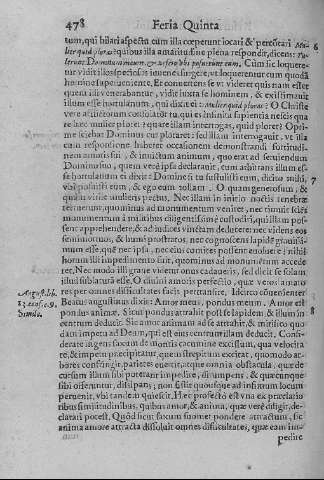 478 Feria Quinta
tum, qui hilari aspectu cum illa cœperunt locari & percõtari Mu-
lier quid ploras? quibus illa amaritudine plena respondit, dicens: Tu-
lerunt Dominum meum, & nescio vbi posuerunt eum. Cũm sic loquere-
tur vidit illos speciosos iuvenes surgere, vt loquerentur cum quodã
homine, qui supervenerat. Et convertens se vt videret quis nam esset
ille qui illis reverentiam exhibebat, vidit iuxta se hominem, & existimavit
illum esse hortulanum, qui dixit ei: Mulier quid ploras? O Christe
vere afflictorum consolator tu, qui es infinita sapientia nescis quã
ob rem mulier ploret? quare illam interrogas, quid ploret? Opti-
me sciebat Dominus cur ploraret: sed illam interrogauit, vt illa
cum responsione haberet occasionem demonstrandi fortitudi-
nem amoris sui, & invictum animum, quo erat ad seruiendum
Domino suo, quem verè ipsa declarauit, cum arbitrans illum es-
se hortulanum ei dixit: Domine si tu sustulisti eum, dicito mihi,
vbi posuisti eum, & ego eum tollam. O quam generosum, &
quàm virile mulieris pectus. Nec illam in initio noctis tenebræ
terruerunt, quominus ad monumentum veniret, nec timuit scire
monumentum à militibus diligentissimè custodiri, qui illam pos-
sent apprehendere, & ad iudices vinctam deducere: nec videns eos
semimortuos, & humi prostratos, nec cognoscens lapidis gravita-
nem esse, quẽ nec ipsa, nec eius comites possent euoluere: nihil
horum illi impedimento fuit, quominus ad monumentum accede-
ret. Nec modo illi graue videtur onus cadaueris, sed dicit se solam
illum sublatura esse. O diuini amoris perfectio, quæ vero amato-
res per omnes difficultates facis penetrare. Idcirco convenienter
Beatus augustinus dixit: Amor meus, pondus meum. Amor est
pondus animæ. Sicut pondus attrahit post se lapidem, & illum in
centrum deducit. Sic amor animam ad se attrahit, & mirifico quo-
dam impetu ad Deum, qui est eius centrum illam deducit. Consi-
derate ingens saxum de montis cacumine excissum, qua velocita-
te, & impetu præcipitatur, quem strepitum excitat, quomodo ar-
bores confringit, parietes euertit, atque omnia obstacula, quæ de-
cursum illum sibi poterant impedire, disrumpens, & quæcunque
sibi offeruntur, dissipans; non sistit quousque ad infimum locum
peruenit, vbi tandem quiescit. Hæc profectò est vna ex præclario-
ribus similitudinibus, quibus amor, & anima, quæ verè diligit, de-
clarari potest. Quòd sicut saxum suomet pondere attractum, sic
anima amore attracta dissoluit omnes difficultates, quæ eam im-
pedire
6
7
8
August. lib.
13. conf. c. 9.